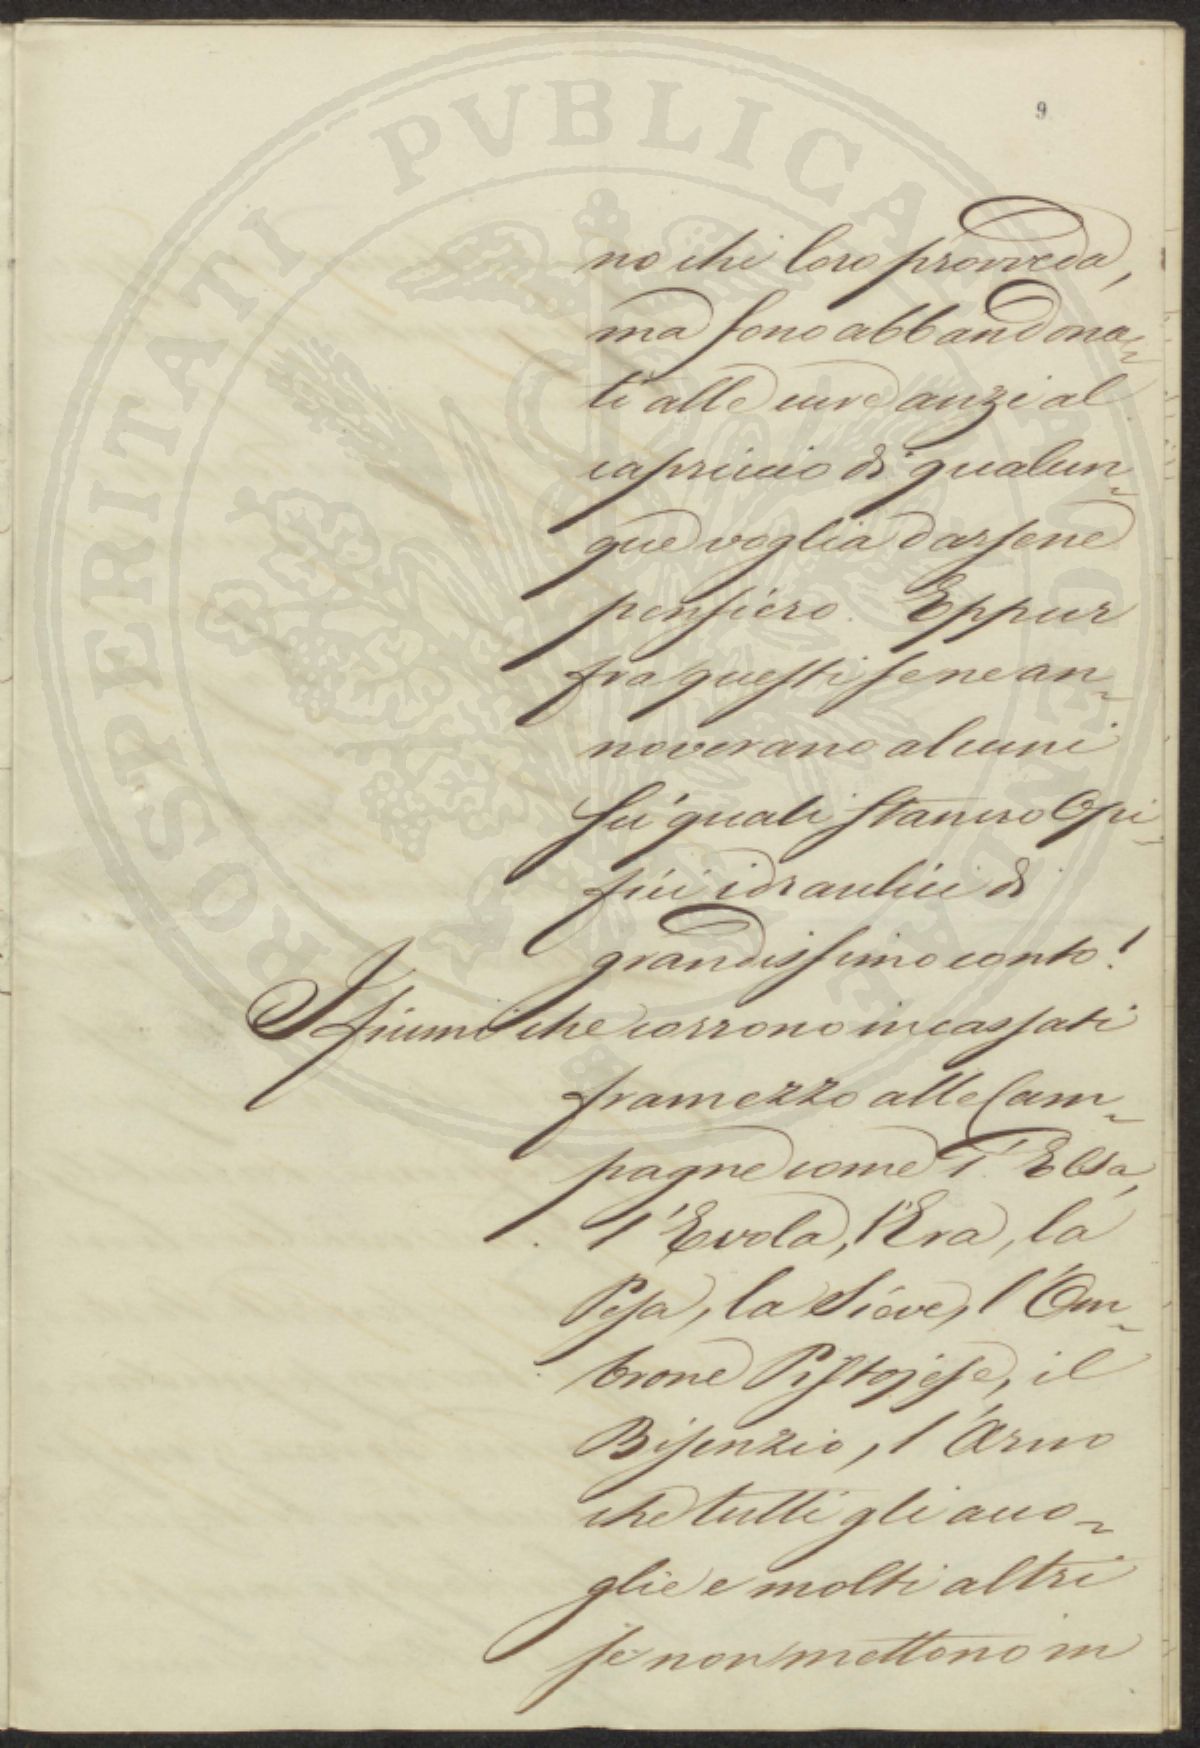 PROSPERITATI PVBLICAE AVGENDAE
9
no chi loro provveda,
ma sono abbandona=
ti alle cure anzi al
capriccio di qualun=
que voglia darsene
pensiero. Eppur
fra questi se ne an=
noverano alcuni
su' quali stanno Opi=
fici idraulici di
grandissimo conto!
I fiumi che corrono incassati
framezzo alle Cam=
pagne come l'Elsa,
l'Evola, l'Era, la
Pesa, la Sieve, l'Om=
brone Pistojese, il
Bisenzio, l'Arno
che tutti gli acco=
glie e molti altri
se non mettono in